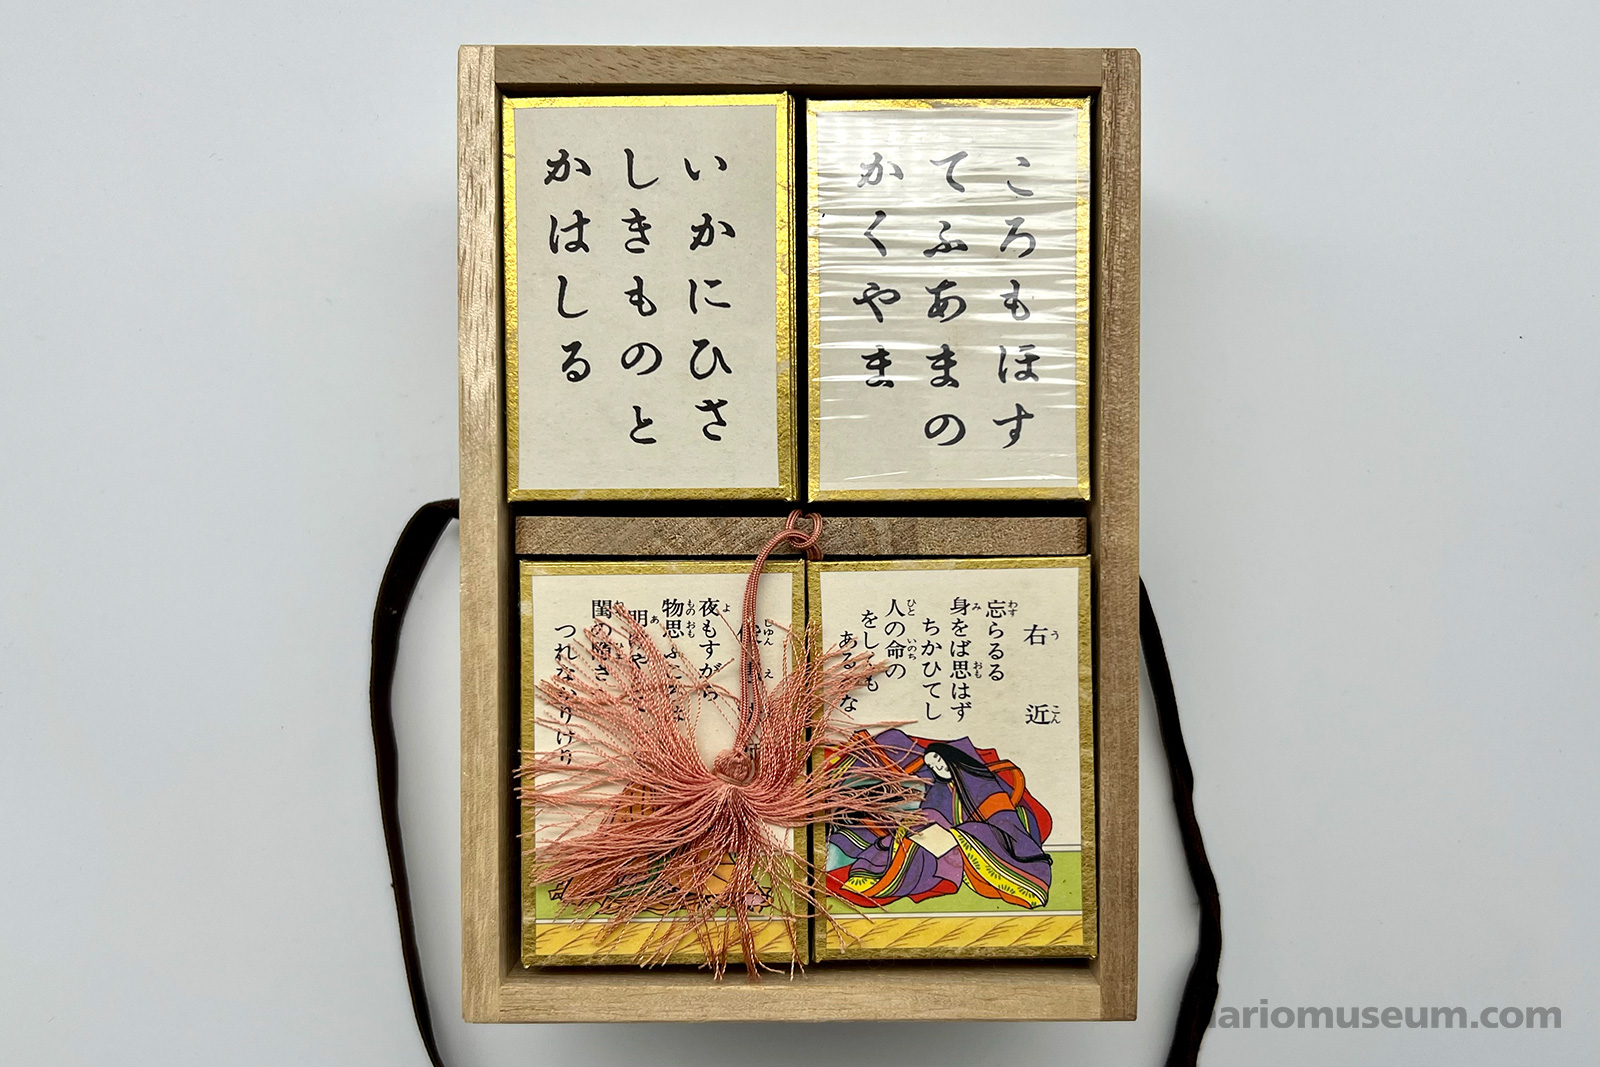 いかにひさ
しきものと
かはしる
ころもほす
てふあまの
かくやま
夜もすがら
物思
つれな
右近
忘らるる
身をば思はず
ちかひてし
人の命の
をし
ある
ariomuseum.com